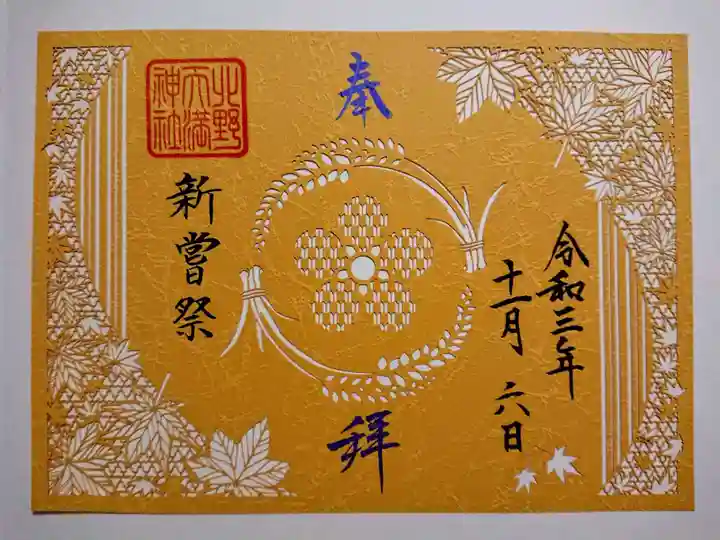 令和三年
十一月 六日
奉
拝
北野
天満
神社
新嘗祭